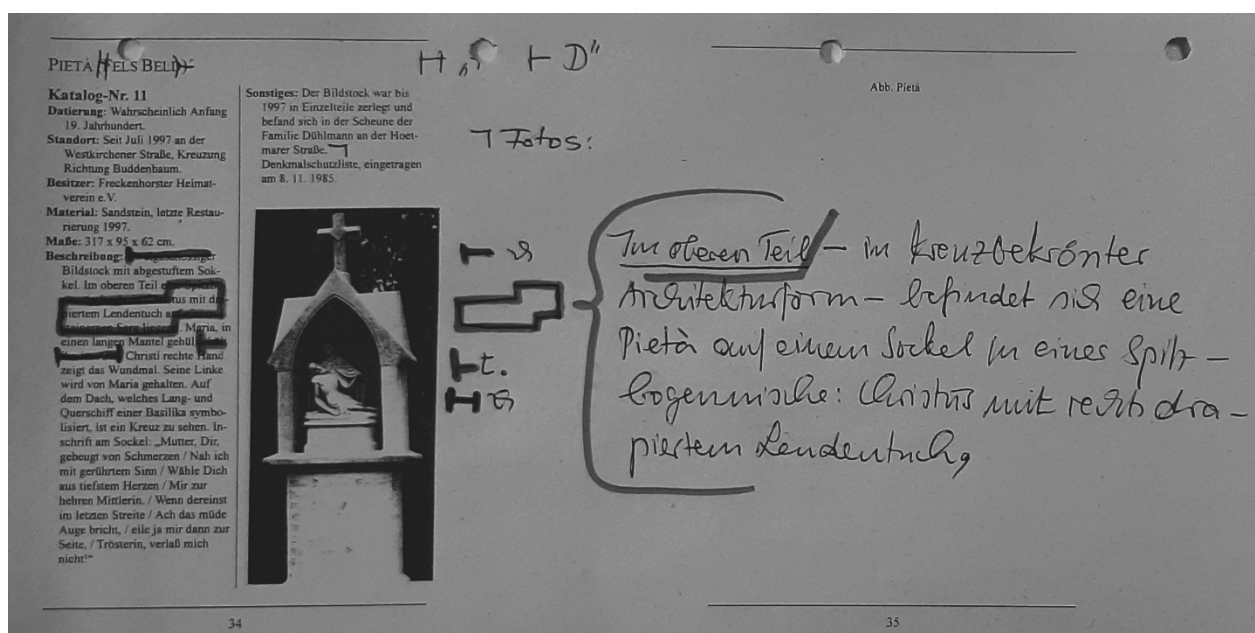 PIETÀ
Katalog-Nr. 11
Datierung: Wahrscheinlich Anfang
19. Jahrhundert.
Standort: Seit Juli 1997 an der
Westkirchener Straße, Kreuzung
Richtung Buddenbaum.
Besitzer: Freckenhorster Heimat-
verein e.V.
Material: Sandstein, letzte Restau-
rierung 1997.
Maße: 317 x 95 x 62 cm.
Beschreibung:
Bildstock mit abgestuftem Sok-
kel. Im oberen Teil
mit dra-
piertem Lendentuch
Maria, in
einen langen Mantel
Christi rechte Hand
zeigt das Wundmal. Seine Linke
wird von Maria gehalten. Auf
dem Dach, welches Lang- und
Querschiff einer Basilika symbo-
lisiert, ist ein Kreuz zu sehen. In-
schrift am Sockel: „Mutter, Dir,
gebeugt von Schmerzen / Nah ich
mit gerührtem Sinn / Wähle Dich
aus tiefstem Herzen / Mir zur
hehren Mittlerin. / Wenn dereinst
im letzten Streite / Ach das müde
Auge bricht, / eile ja mir dann zur
Seite, / Trösterin, verlaß mich
nicht!“
34
Sonstiges: Der Bildstock war bis
1997 in Einzelteile zerlegt und
befand sich in der Scheune der
Familie Dühlmann an der Hoet-
marer Straße.
Denkmalschutzliste, eingetragen
am 8. 11. 1985.
Fotos:
t.
Abb. Pietà
Im oberen Teil – in kreuzbekrönter
Architekturform – befindet sich eine
Pietà auf einem Sockel in einer Spitz-
bogennische: Christus mit rechts dra-
piertem Lendentuch,
35